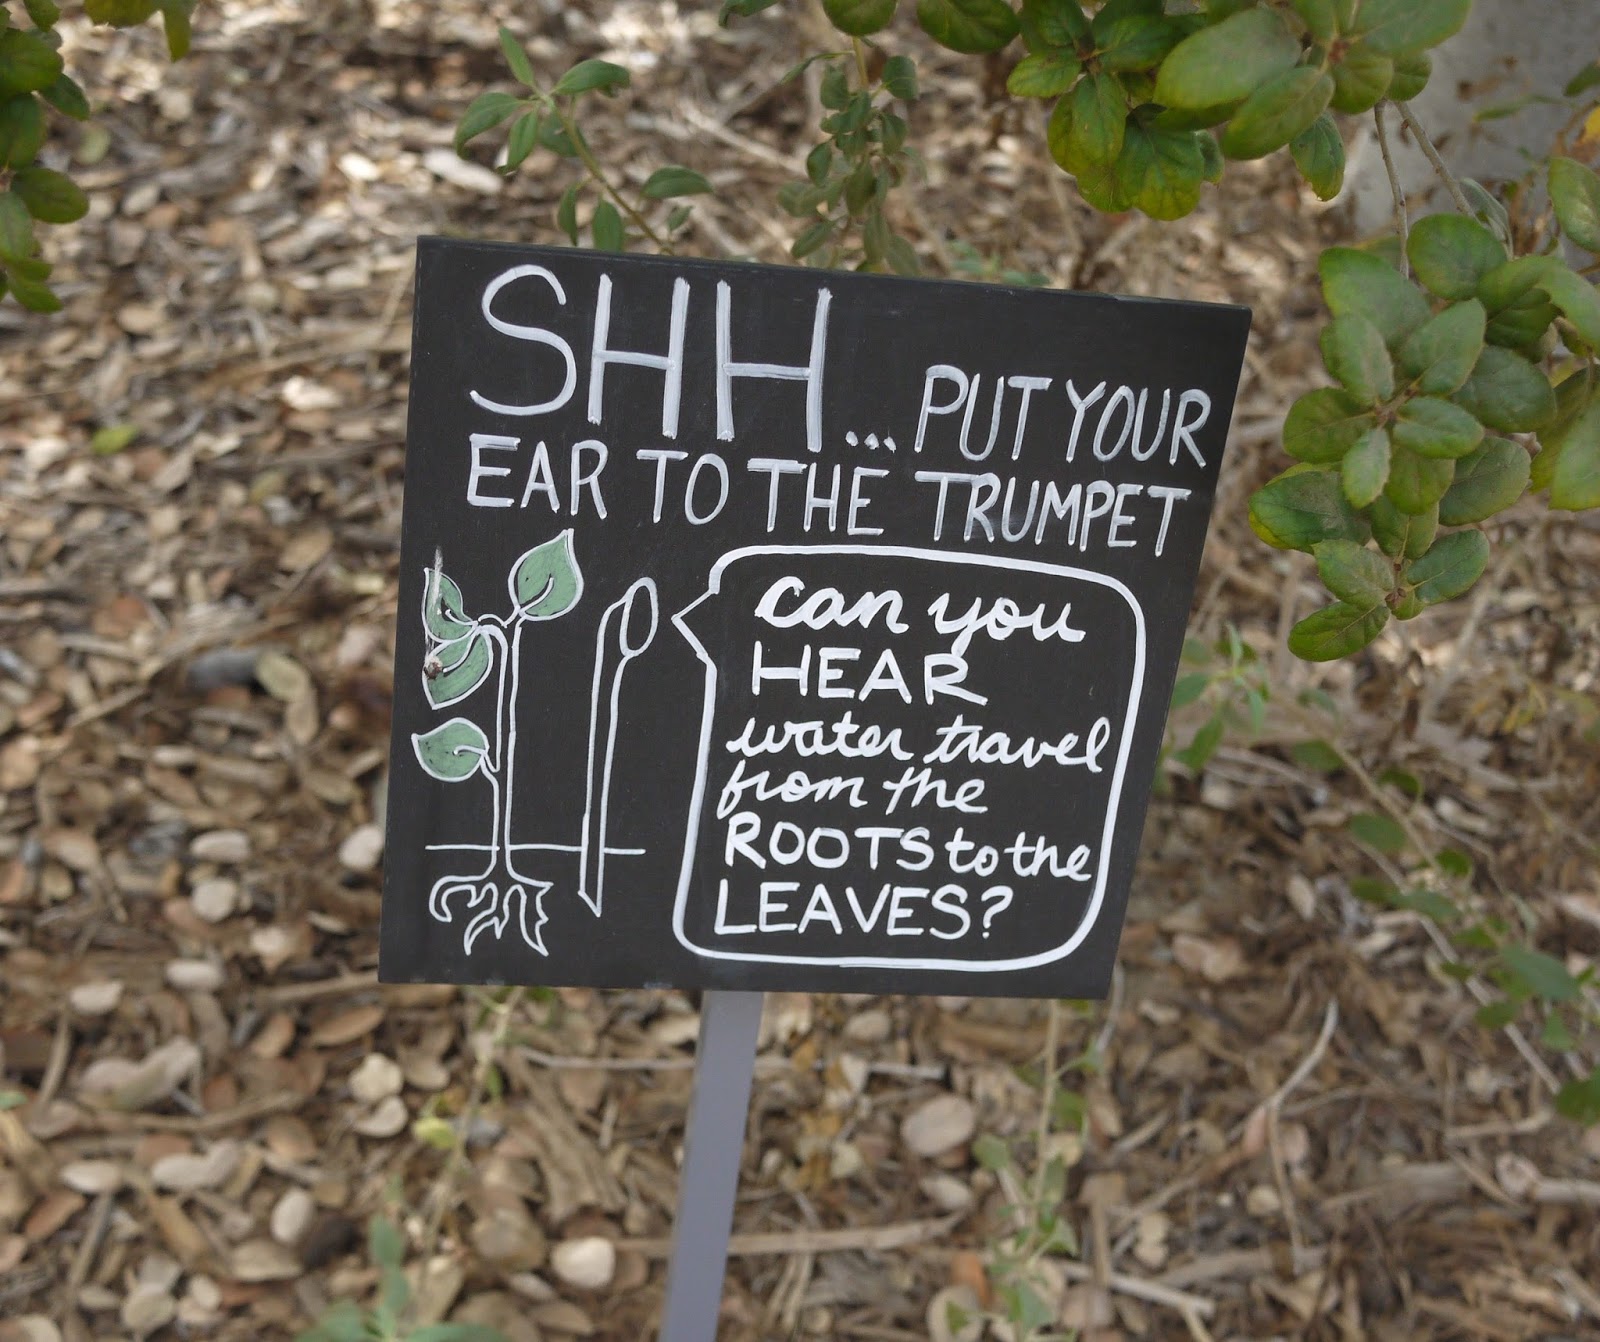 SHH... PUT YOUR
EAR TO THE TRUMPET
can you
HEAR
water travel
from the
ROOTS to the
LEAVES?